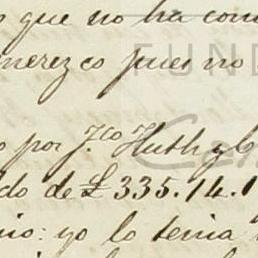 o que no ha com
merezco pues no
FUND
o por J.co Huth y C
do de £ 335.14.1
nio: yo lo tenia